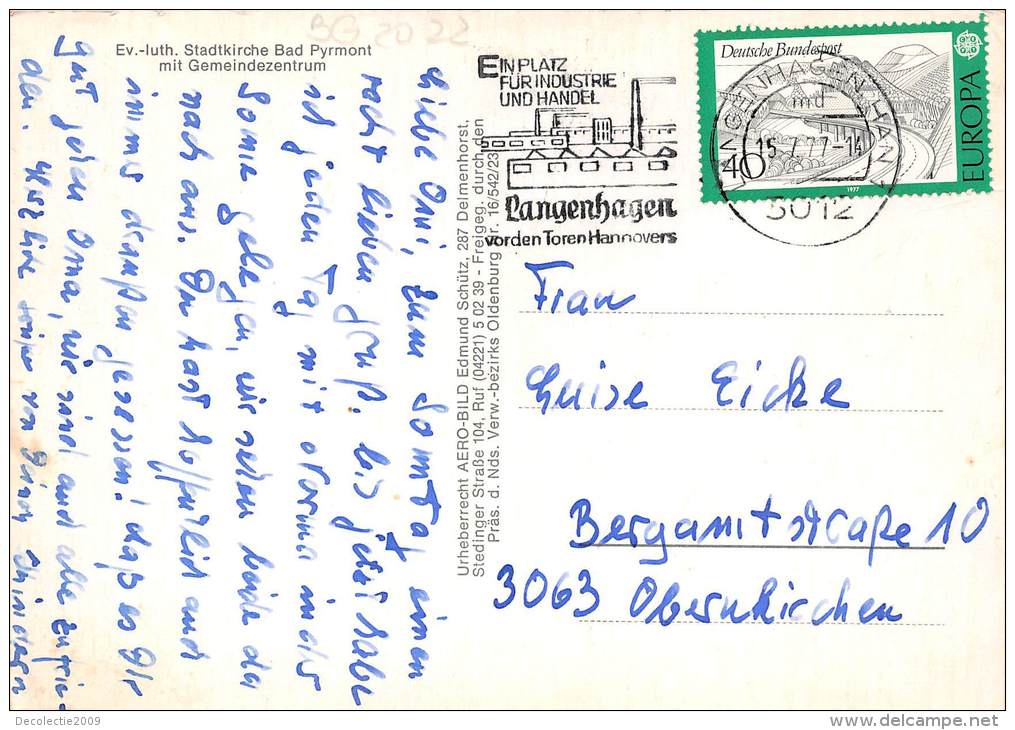 BG 20 22
Ev.-luth. Stadtkirche Bad Pyrmont
mit Gemeindezentrum
EIN PLATZ
FÜR INDUSTRIE
UND HANDEL
Langenhagen
vor den Toren Hannovers
Deutsche Bundespost
EUROPA
40
1977
LANGENHAGEN, HAN 1
md
15.7.77-14
3012
Liebe Omi, zum Sonntag einen
recht lieben Gruß. bis jetzt habe
ich jeden Tag mit
Sonne gelegen, wir sehen beide
nach aus. Du hast hoffentlich auch
immer draußen gegessen! Daß es Dir
gut geht Oma, wir sind auch alle zufrie-
den. Herzliche von Deinen Kindern
Urheberrecht AERO-BILD Edmund Schütz, 287 Delmenhorst,
Stedinger Straße 104, Ruf (04221) 5 02 39 - Freigeg. durch den
Präs. d. Nds. Verw.-bezirks Oldenburg Nr. 16/542/23
Frau
Luise Eicke
Bergamtstraße 10
3063 Obernkirchen
Decolectie2009
delcampe.net